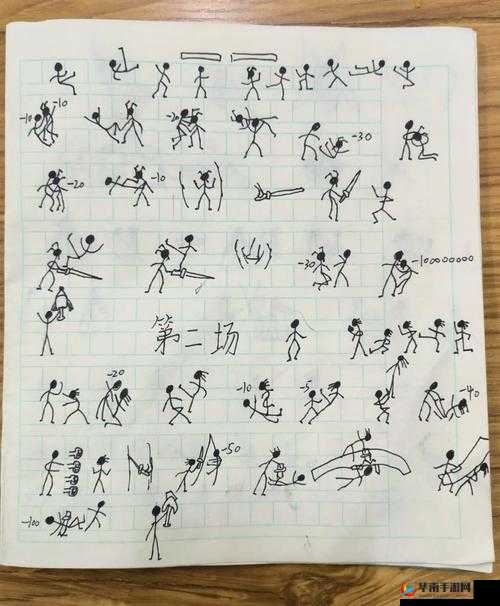 -10 -10 -20 -30
-20 -10
-30 -100000000
第二场
-20 -10 -5 -40
-50
-100
华南手游网